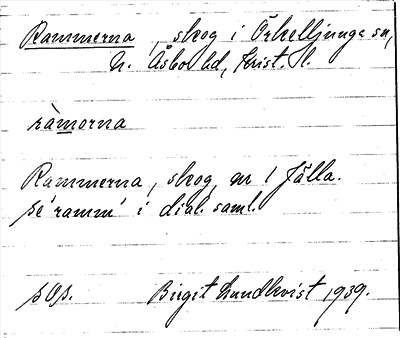 Rammerna, skog i Örkelljunga sn,
N. Åsbo hd, Krist. l.
ràmorna
Rammerna, skog, nr 1 Fålla.
se 'ramm' i dial. saml.
s Ög.
Birgit Lundkvist 1939.